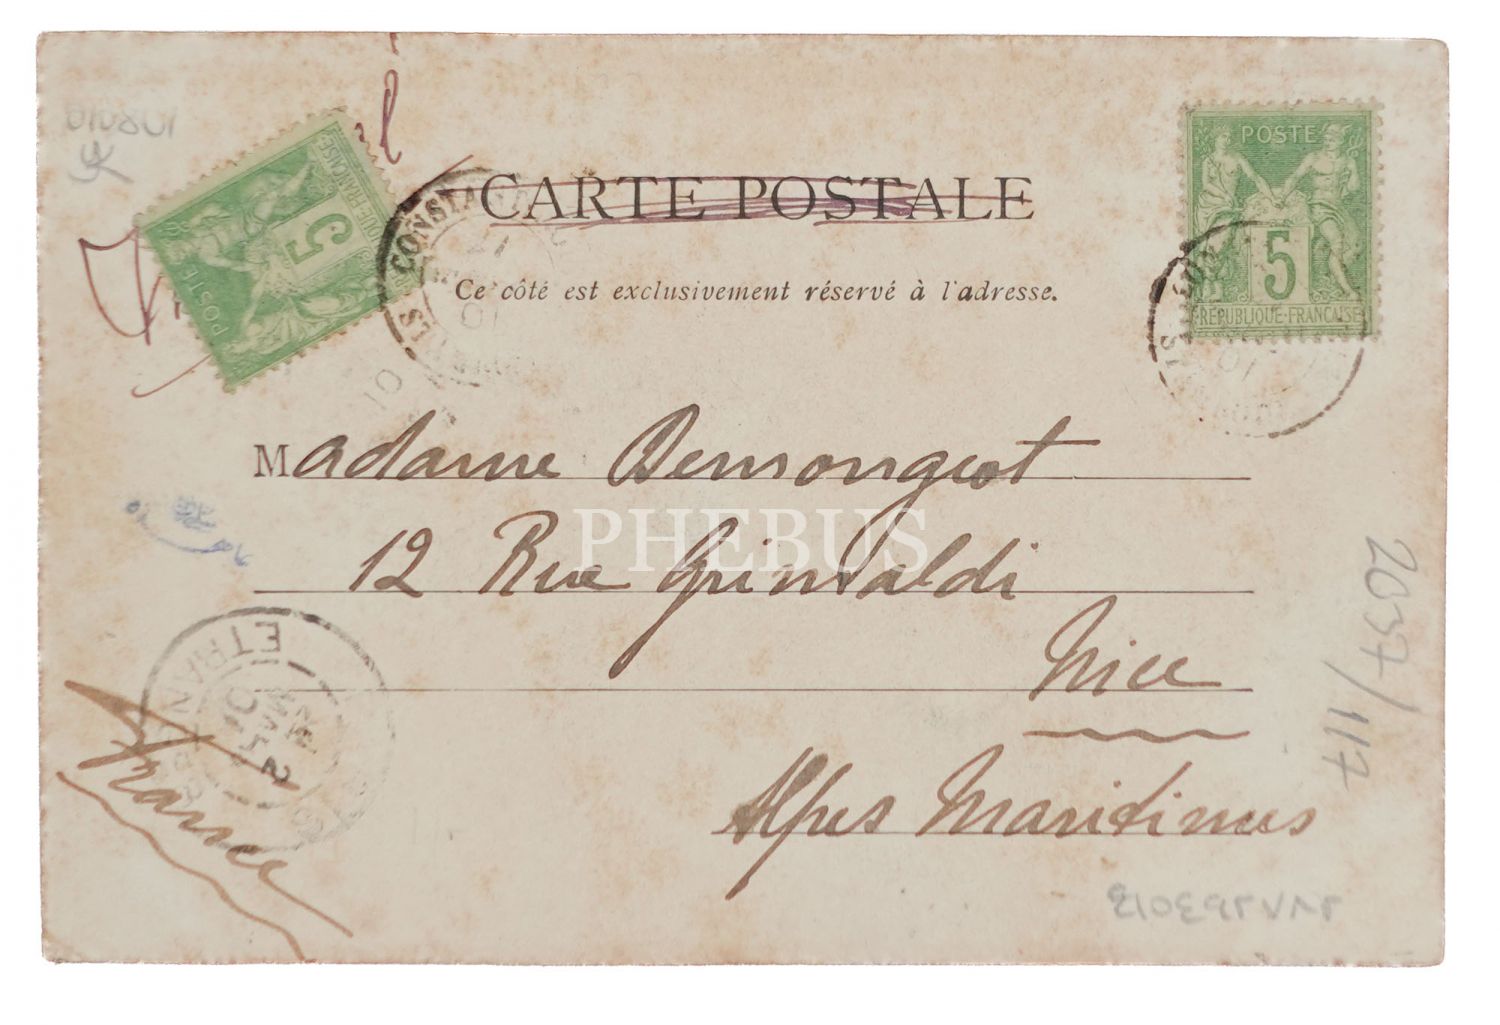 CARTE POSTALE
Ce côté est exclusivement réservé à l'adresse.
POSTE
5
RÉPUBLIQUE FRANÇAISE
POSTE
5
RÉPUBLIQUE FRANÇAISE
CONSTAN
Madame Demongeot
12 Rue Grimaldi
Nice
Alpes Maritimes
France
ETRANGER
PHEBUS
2037/117